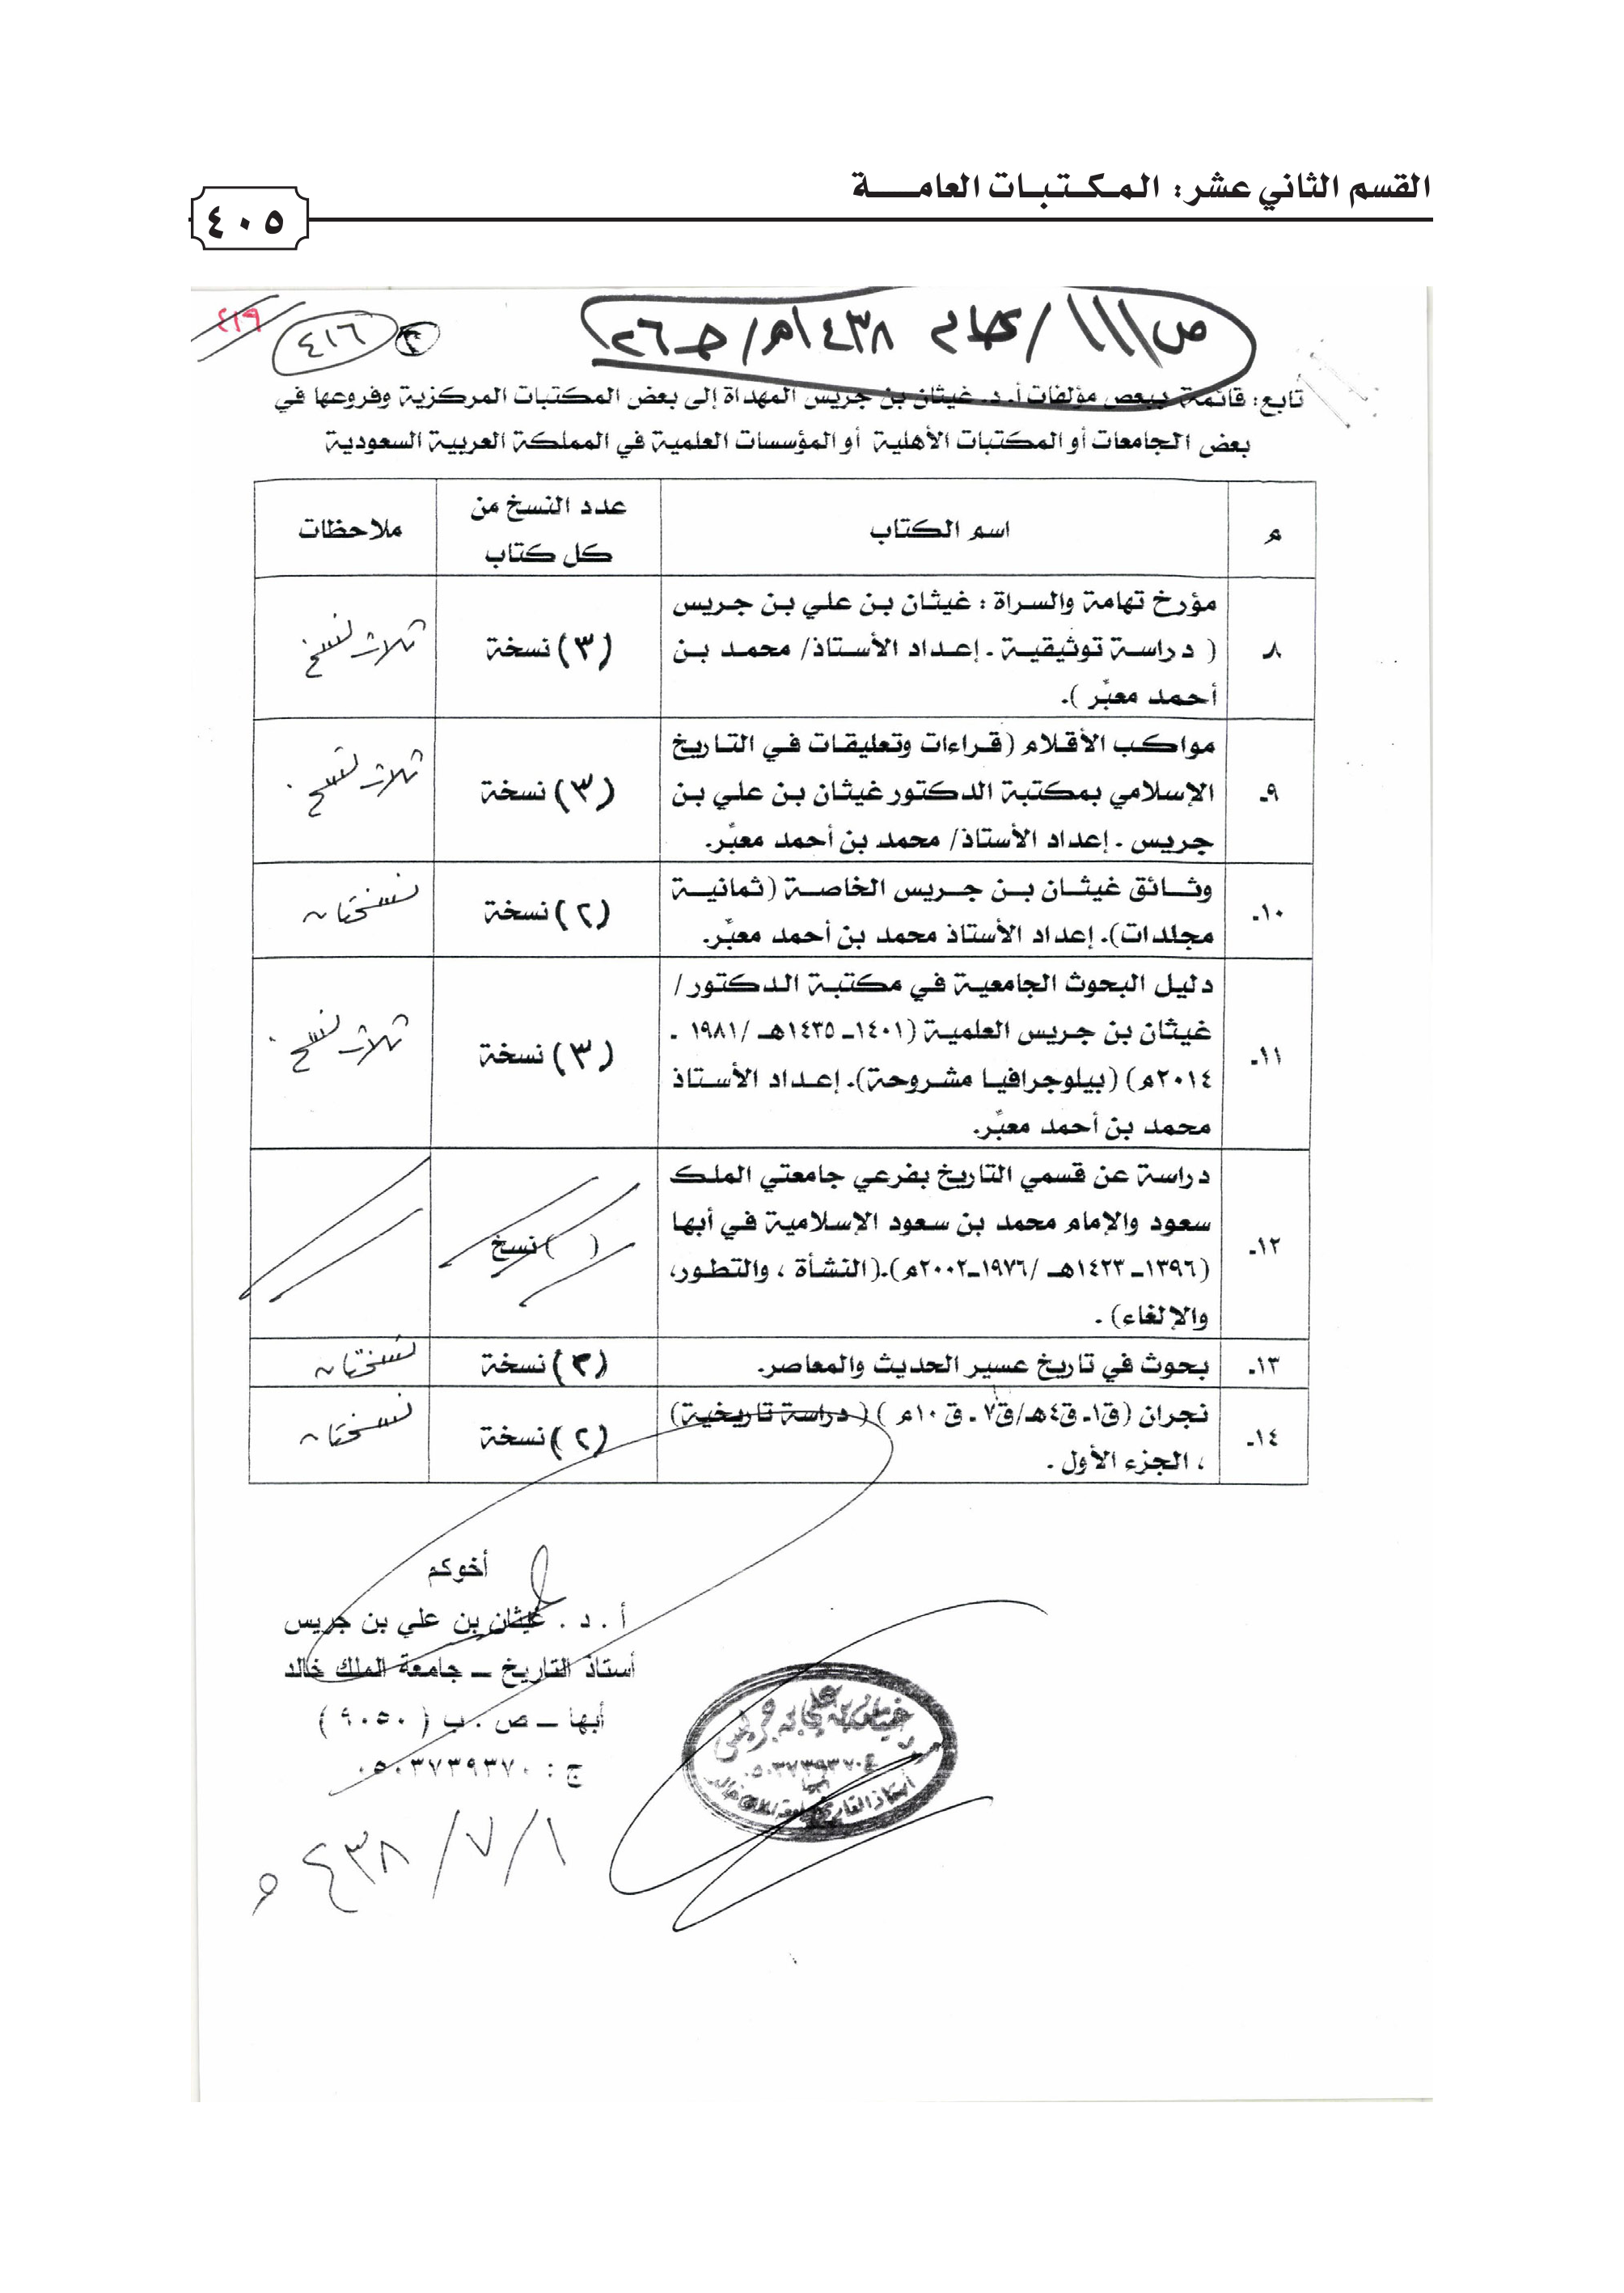 القسم الثاني عشر: المكتبات العامة
٤٠٥
ص١١١/ ١٤٣٨هـ/ج٢٦
٤١٦
٤١٩
تابع: قائمة ببعض مؤلفات أ.د. غيثان بن جريس المهداة إلى بعض المكتبات المركزية وفروعها في
بعض الجامعات أو المكتبات الأهلية أو المؤسسات العلمية في المملكة العربية السعودية
م
اسم الكتاب
عدد النسخ من
كل كتاب
ملاحظات
٨
مؤرخ تهامة والسراة : غيثان بن علي بن جريس
( دراسة توثيقية . إعداد الأستاذ/ محمد بن
أحمد معبّر ).
(٣) نسخة
ثلاث نسخ
٩-
مواكب الأقلام (قراءات وتعليقات في التاريخ
الإسلامي بمكتبة الدكتور غيثان بن علي بن
جريس . إعداد الأستاذ/ محمد بن أحمد معبّر.
(٣) نسخة
ثلاث نسخ .
١٠-
وثائق غيثان بن جريس الخاصة (ثمانية
مجلدات). إعداد الأستاذ محمد بن أحمد معبّر.
(٢) نسخة
نسختان
١١-
دليل البحوث الجامعية في مكتبة الدكتور/
غيثان بن جريس العلمية (١٤٠١ـ ١٤٣٥هـ /١٩٨١ .
٢٠١٤م) (بيلوجرافيا مشروحة). إعداد الأستاذ
محمد بن أحمد معبّر.
(٣) نسخة
ثلاث نسخ .
١٢-
دراسة عن قسمي التاريخ بفرعي جامعتي الملك
سعود والإمام محمد بن سعود الإسلامية في أبها
(١٣٩٦ـ ١٤٢٣هـ /١٩٧٦ـ٢٠٠٢م).(النشأة ، والتطور،
والإلغاء) .
(  ) نسخ
١٣-
بحوث في تاريخ عسير الحديث والمعاصر.
(٢) نسخة
نسختان
١٤-
نجران (ق١ـ ق٤هـ/ق٧ ـ ق١٠م ) ( دراسة تاريخية)
، الجزء الأول .
(٢) نسخة
نسختان
أخوكم
أ . د . غيثان بن علي بن جريس
أستاذ التاريخ ــ جامعة الملك خالد
أبها ــ ص . ب ( ٩٠٥٠ )
ج : ٠٥٠٣٧٣٩٣٧٠
١/٧/١٤٣٨هـ